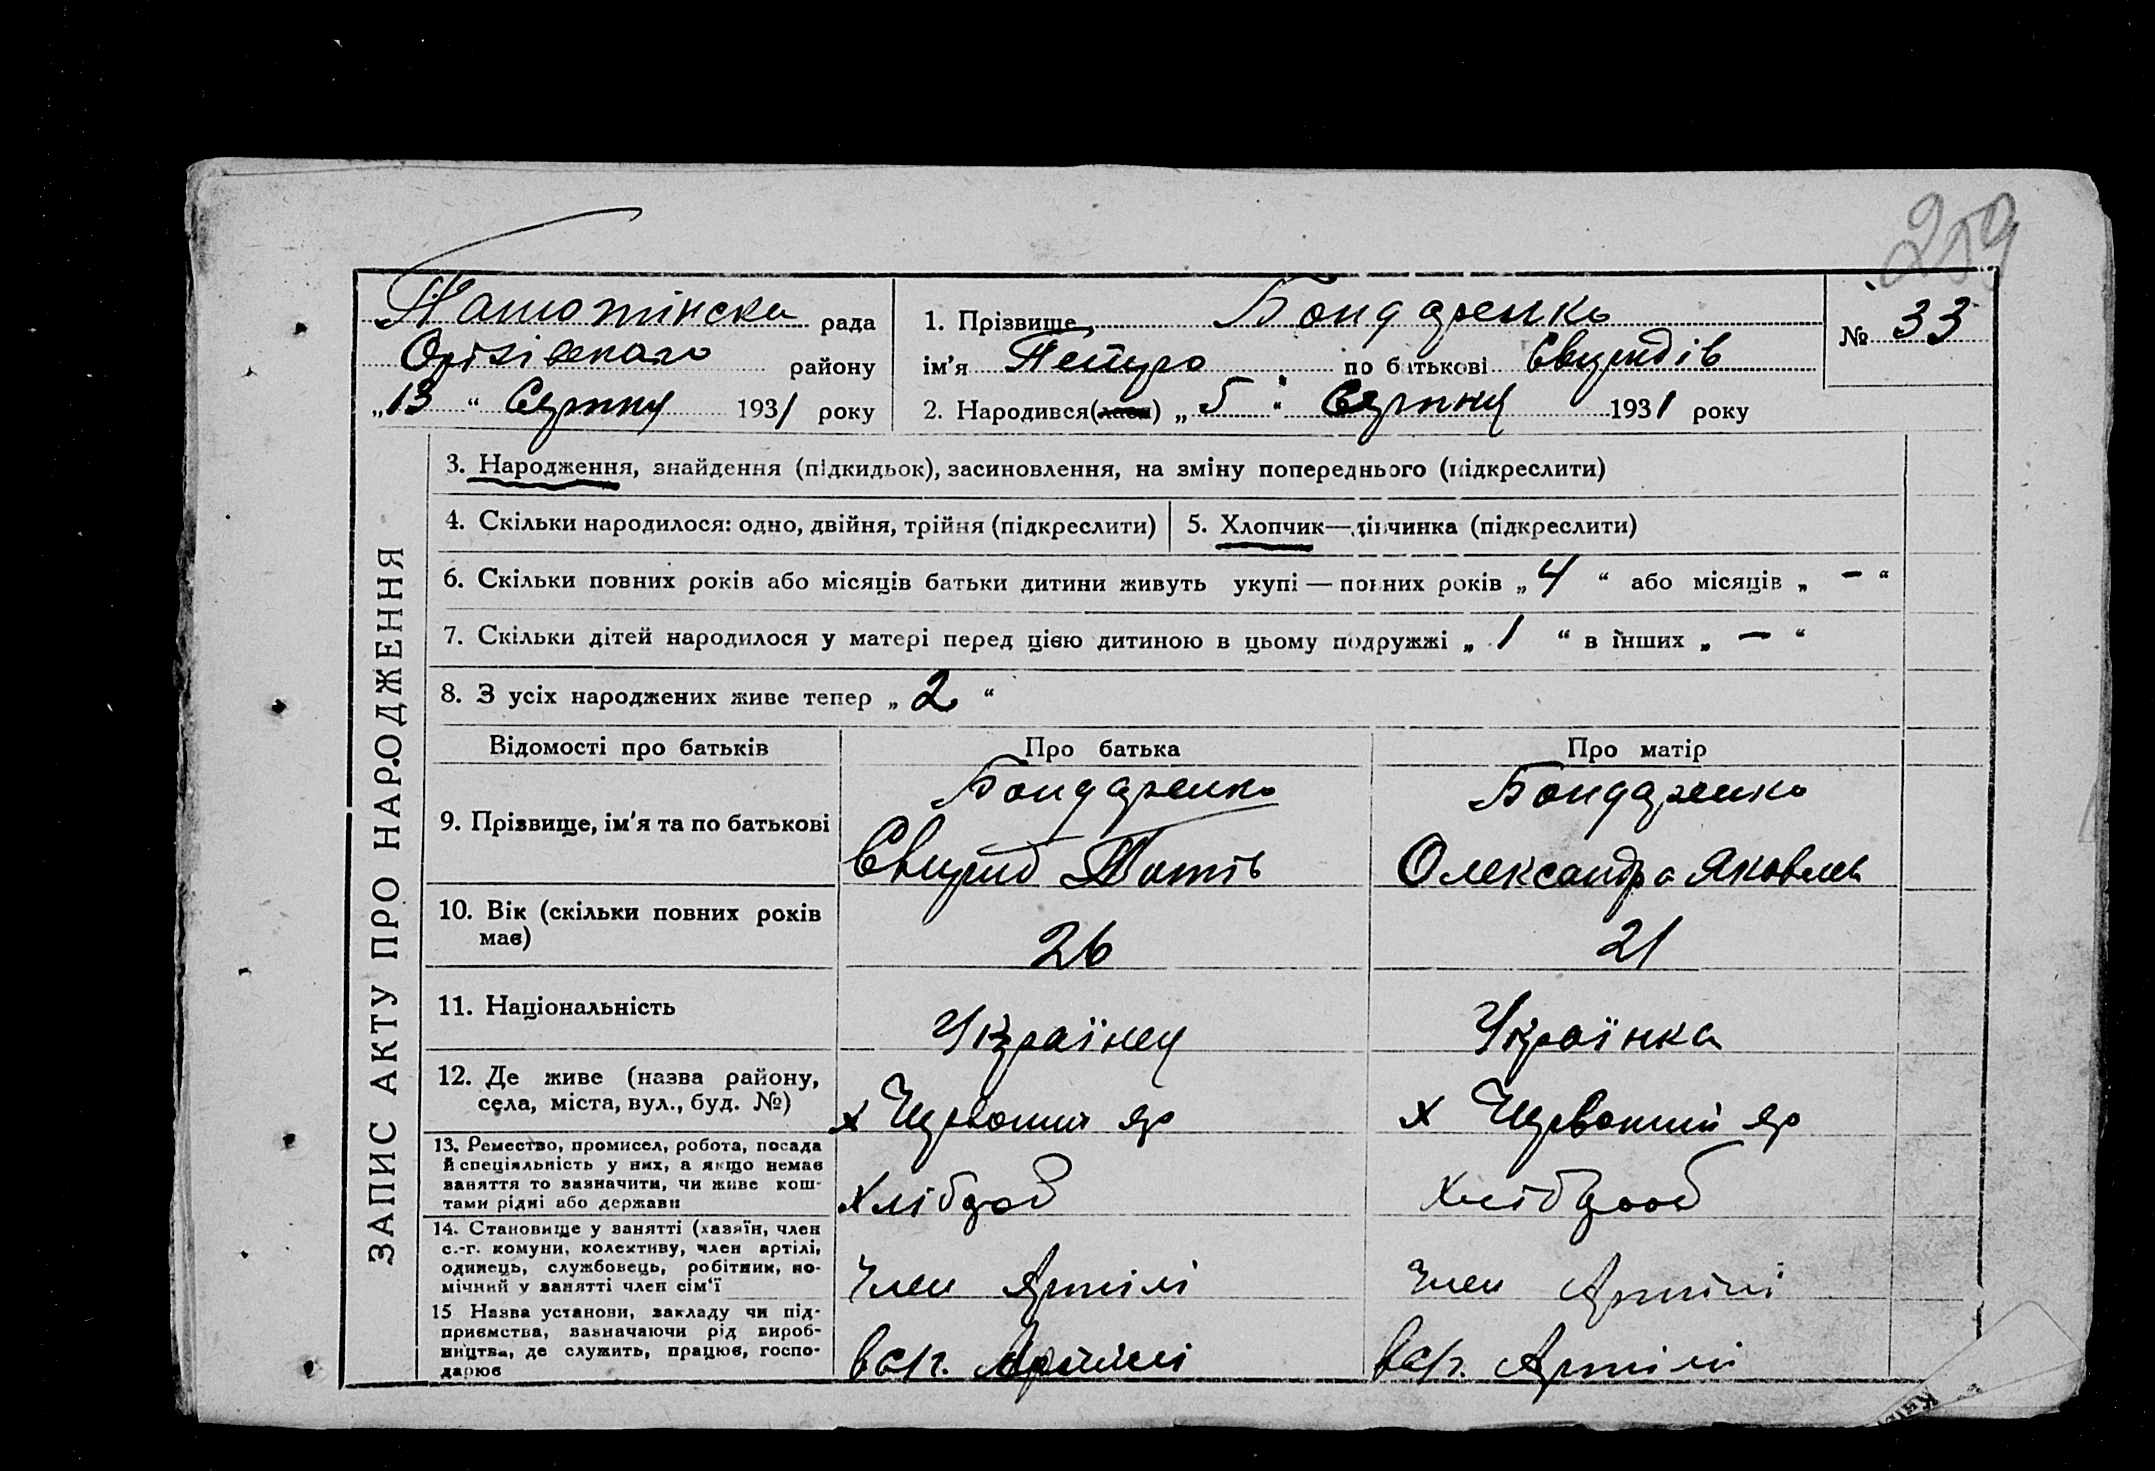 259
рада
району
„13“ Серпня 1931 року
1. Прізвище Бондаренко
ім'я Петро по батькові Свиридів
2. Народився(лася) „5“ Серпня 1931 року
№ 33
ЗАПИС АКТУ ПРО НАРОДЖЕННЯ
3. Народження, знайдення (підкидьок), засиновлення, на зміну попереднього (підкреслити)
4. Скільки народилося: одно, двійня, трійня (підкреслити)
5. Хлопчик—дівчинка (підкреслити)
6. Скільки повних років або місяців батьки дитини живуть укупі — повних років „4“ або місяців „—“
7. Скільки дітей народилося у матері перед цією дитиною в цьому подружжі „1“ в інших „—“
8. З усіх народжених живе тепер „2“
Відомості про батьків
Про батька
Про матір
9. Прізвище, ім'я та по батькові
Бондаренко
Свирид
Бондаренко
Олександра Яковлев
10. Вік (скільки повних років
має)
26
21
11. Національність
Українец
Українка
12. Де живе (назва району,
села, міста, вул., буд. №)
х Червоний яр
х Червоний яр
13. Ремество, промисел, робота, посада
й спеціяльність у них, а якщо немає
заняття то зазначити, чи живе кош-
тами рідні або держави
Хлібороб
Хлібороб
14. Становище у занятті (хазяїн, член
с.-г. комуни, колективу, член артілі,
одинець, службовець, робітник, по-
мічний у занятті член сім'ї
Член Артілі
Член Артілі
15 Назва установи, закладу чи під-
приємства, зазначаючи рід вироб-
ництва, де служить, працює, госпо-
дарює
в с/г. Артілі
в с/г. Артілі